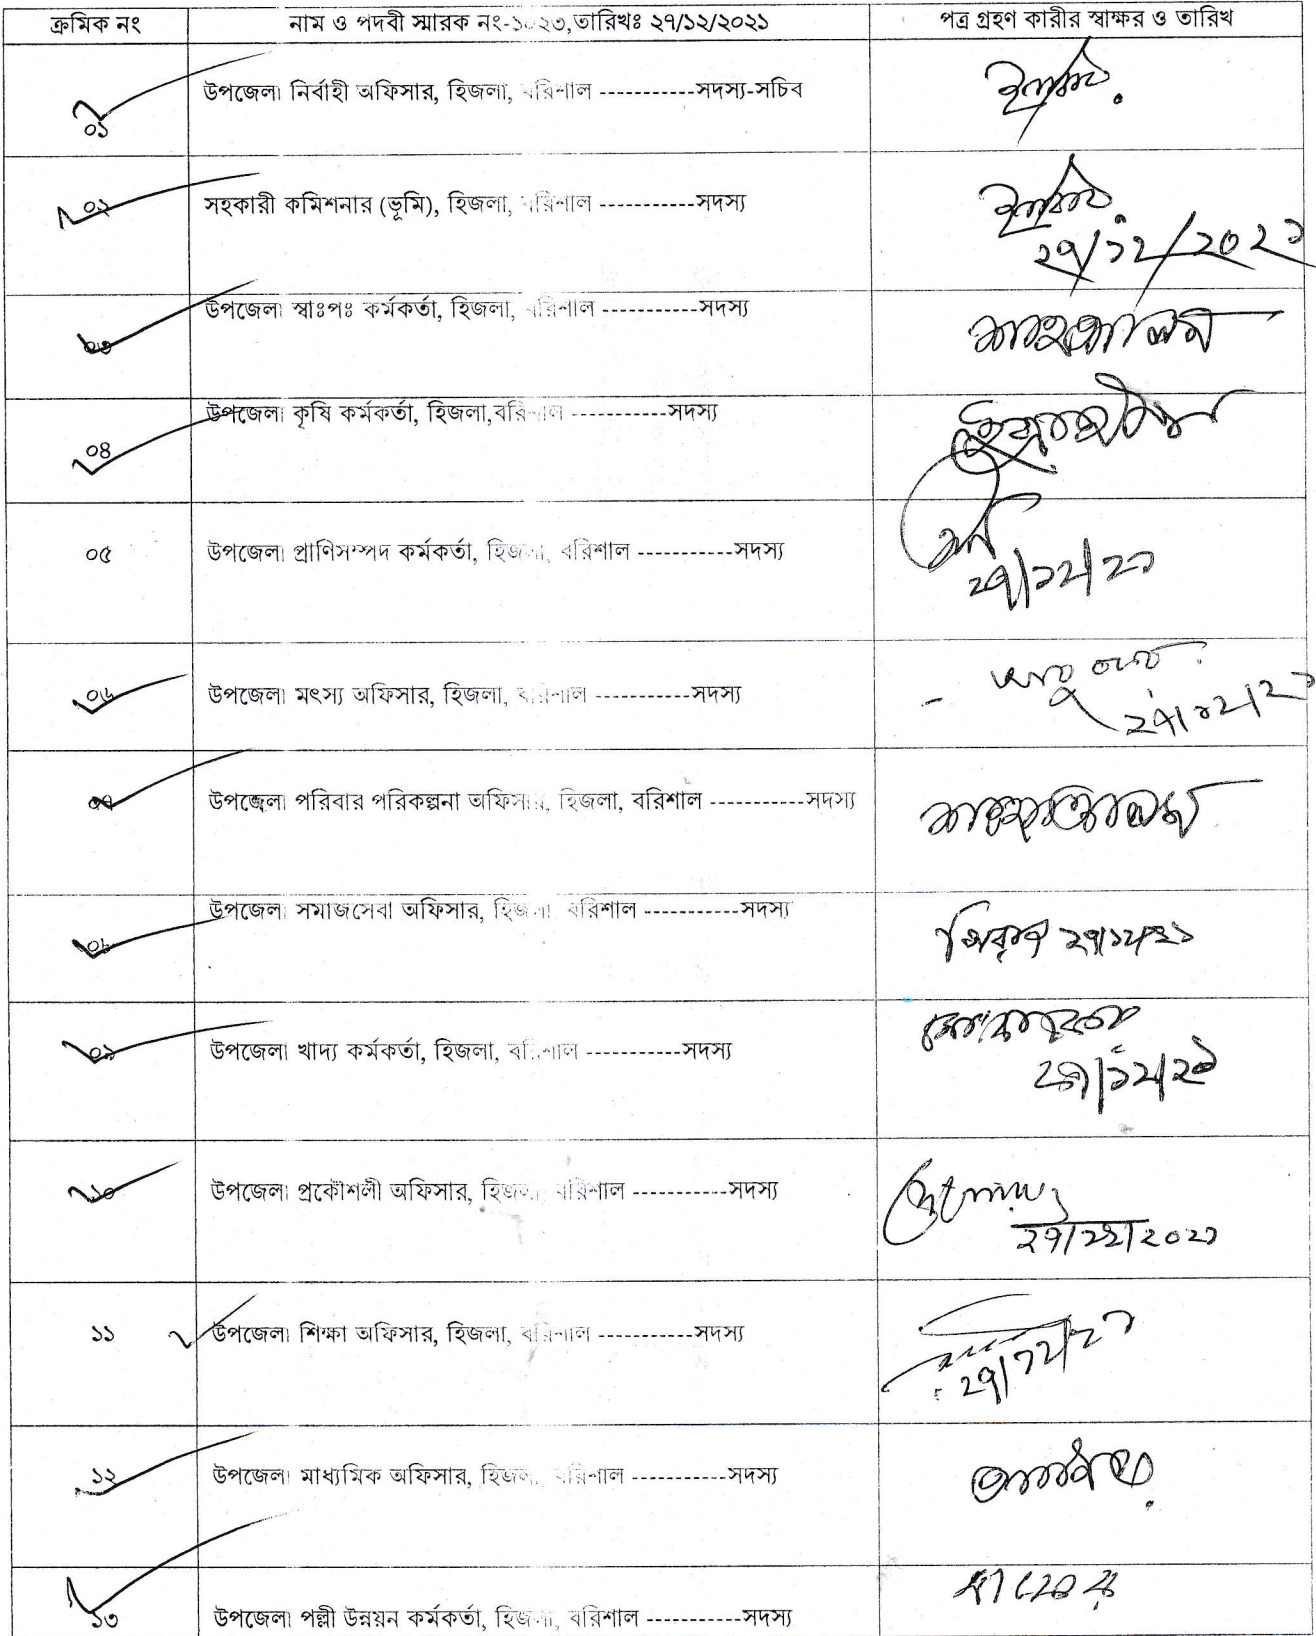 ক্রমিক নং নাম ও পদবী স্মারক নং-১০২৩,তারিখঃ ২৭/১২/২০২১ পত্র গ্রহণ কারীর স্বাক্ষর ও তারিখ
০১ উপজেলা নির্বাহী অফিসার, হিজলা, বরিশাল -----------সদস্য-সচিব
০২ সহকারী কমিশনার (ভূমি), হিজলা, বরিশাল -----------সদস্য
২৭/১২/২০২১
০৩ উপজেলা স্বাঃপঃ কর্মকর্তা, হিজলা, বরিশাল -----------সদস্য
০৪ উপজেলা কৃষি কর্মকর্তা, হিজলা,বরিশাল -----------সদস্য
০৫ উপজেলা প্রাণিসম্পদ কর্মকর্তা, হিজলা, বরিশাল -----------সদস্য
২৭/১২/২১
০৬ উপজেলা মৎস্য অফিসার, হিজলা, বরিশাল -----------সদস্য
২৭/১২/২১
০৭ উপজেলা পরিবার পরিকল্পনা অফিসার, হিজলা, বরিশাল -----------সদস্য
০৮ উপজেলা সমাজসেবা অফিসার, হিজলা, বরিশাল -----------সদস্য ২৭/১২/২১
০৯ উপজেলা খাদ্য কর্মকর্তা, হিজলা, বরিশাল -----------সদস্য
২৭/১২/২১
১০ উপজেলা প্রকৌশলী অফিসার, হিজলা, বরিশাল -----------সদস্য
২৭/১২/২০২১
১১ উপজেলা শিক্ষা অফিসার, হিজলা, বরিশাল -----------সদস্য
২৭/১২/২১
১২ উপজেলা মাধ্যমিক অফিসার, হিজলা, বরিশাল -----------সদস্য
১৩ উপজেলা পল্লী উন্নয়ন কর্মকর্তা, হিজলা, বরিশাল -----------সদস্য